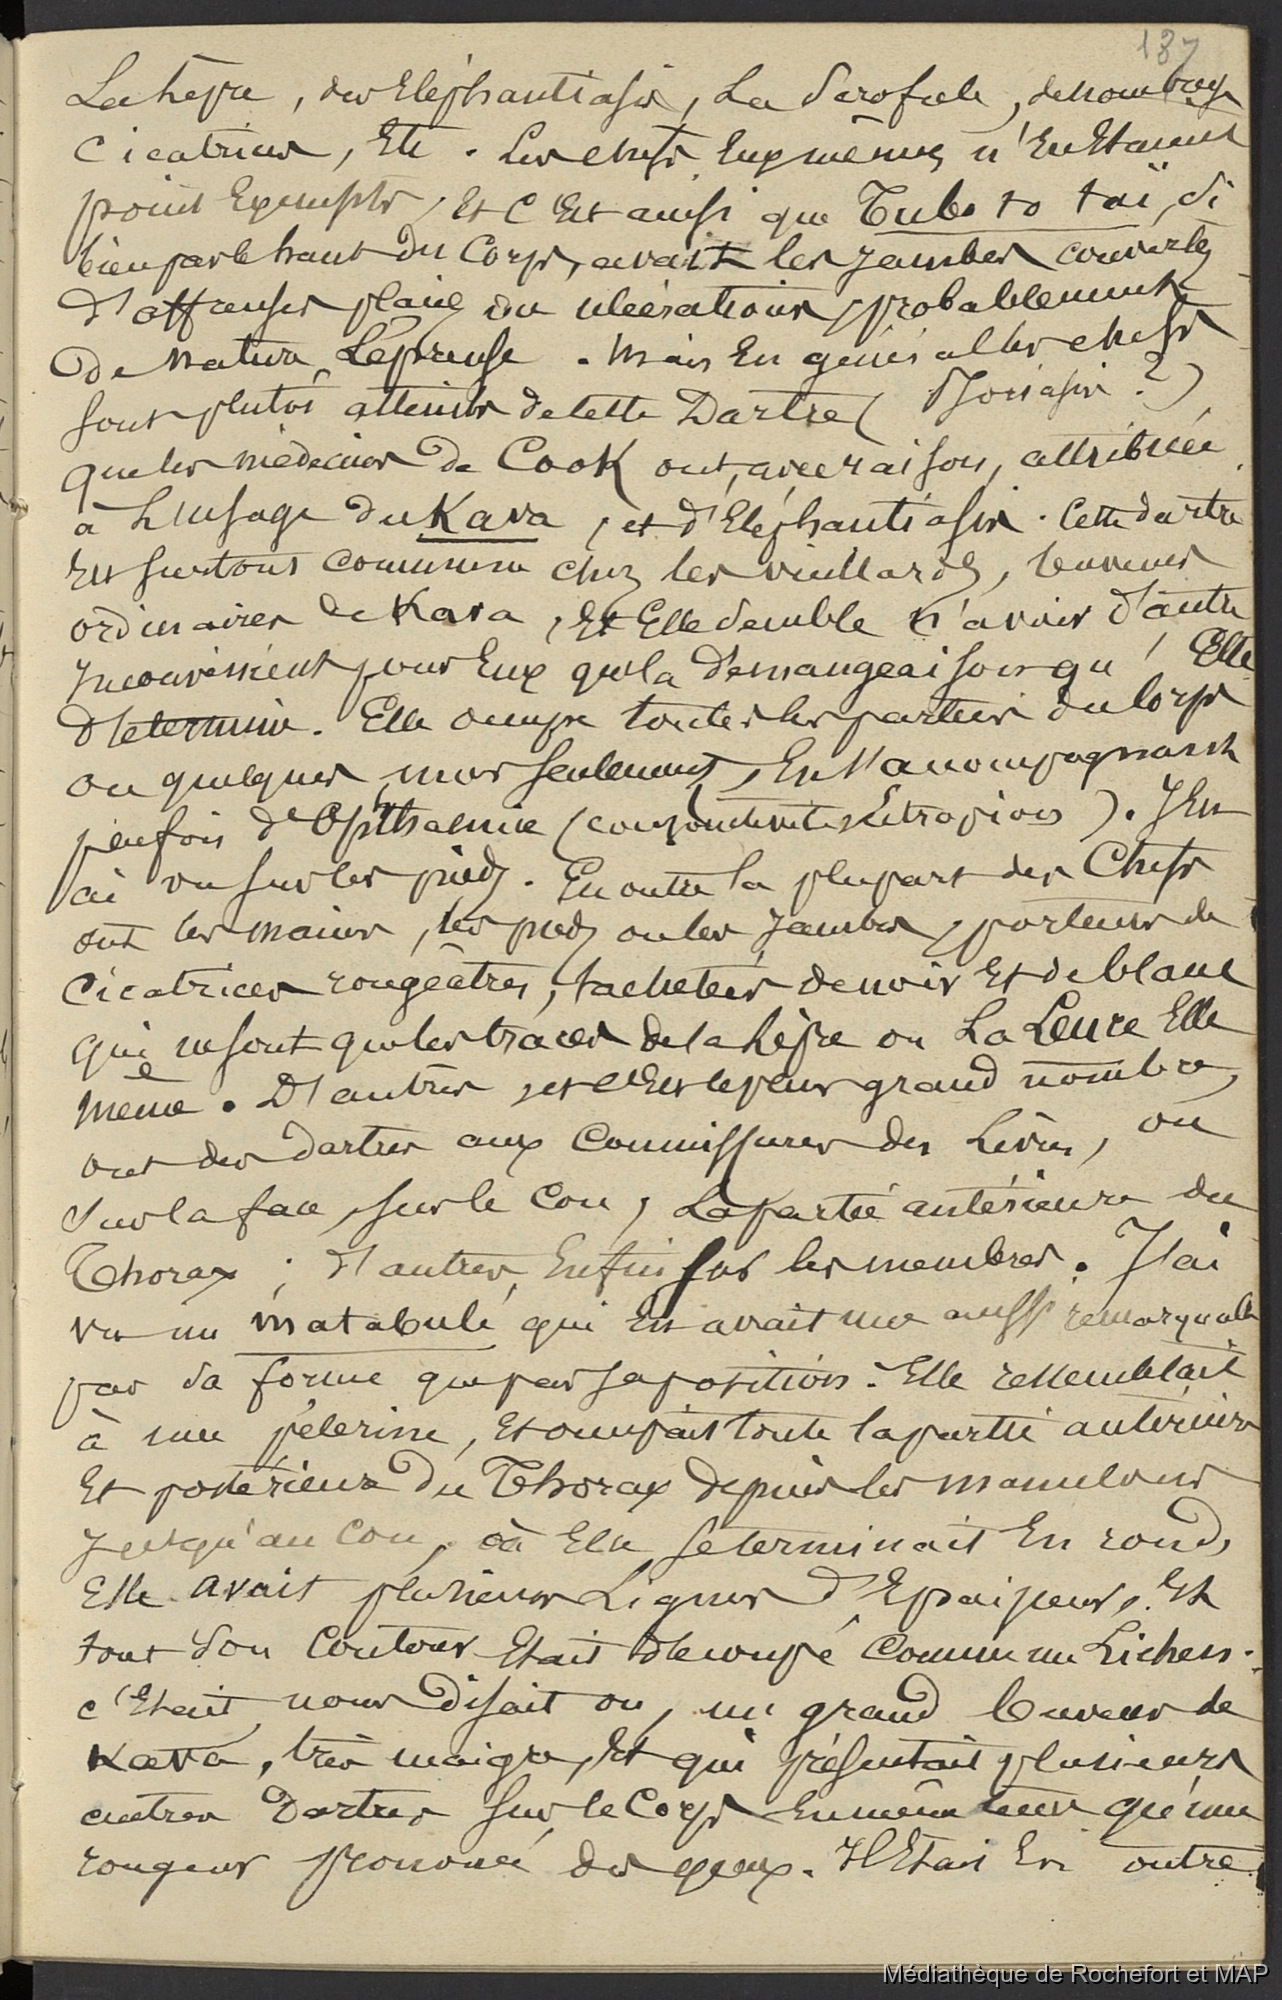 187
La lèpre, des Eléphantiasis, La Scrofule, de nombreuses
Cicatrices, Etc. Les chefs Eux mêmes n'En Etaient
point Exempts, Et C'Est ainsi que Tubo to taï, si
bien par le haut du Corps, avait les jambes couvertes
d'affreuses plaies ou ulcérations, probablement
de Nature Lépreuse. Mais En général les chefs
sont plutôt atteints de cette Dartre (Psoriasis ?)
que les médecins de Cook ont, avec raison, attribuée
à L'usage du Kava, et d'Eléphantiasis. Cette dartre
Est surtout commune chez les vieillards, buveurs
ordinaires de Kava, Et Elle semble n'avoir d'autre
Inconvénient pour Eux que la démangeaison qu'Elle
détermine. Elle occupe toutes les parties du Corps
ou quelques unes seulement, En s'accompagnant
parfois d'Ophthalmie (conjonctivite Ectropion). J'En
ai vu sur les pieds. En outre la plupart des Chefs
ont les mains, les pieds ou les jambes, porteurs de
Cicatrices rougeâtres, tachetées de noir Et de blanc
qui ne sont que les traces de la Lèpre ou La Leuce Elle
même. D'autres, et c'Est le plus grand nombre,
ont des dartres aux Commissures des Lèvres, ou
sur la face, sur le Cou, La partie antérieure du
Thorax ; d'autres Enfin sur les membres. J'ai
vu un matabulé qui En avait une aussi remarquable
par sa forme que par sa position. Elle ressemblait
à une pélerine, Et occupait toute la partie antérieure
Et postérieure du Thorax depuis les mamelons
jusqu'au Cou, où Elle se terminait En rond,
Elle avait plusieurs Lignes d'Epaisseur, Et
tout son Contour Etait découpé Comme un Lichen.
c'Etait, nous disait on, un grand buveur de
Kava, très maigre, Et qui présentait plusieurs
autres Dartres sur le Corps En même temps qu'une
rougeur prononcée des yeux. Il Etait En outre
Médiathèque de Rochefort et MAP